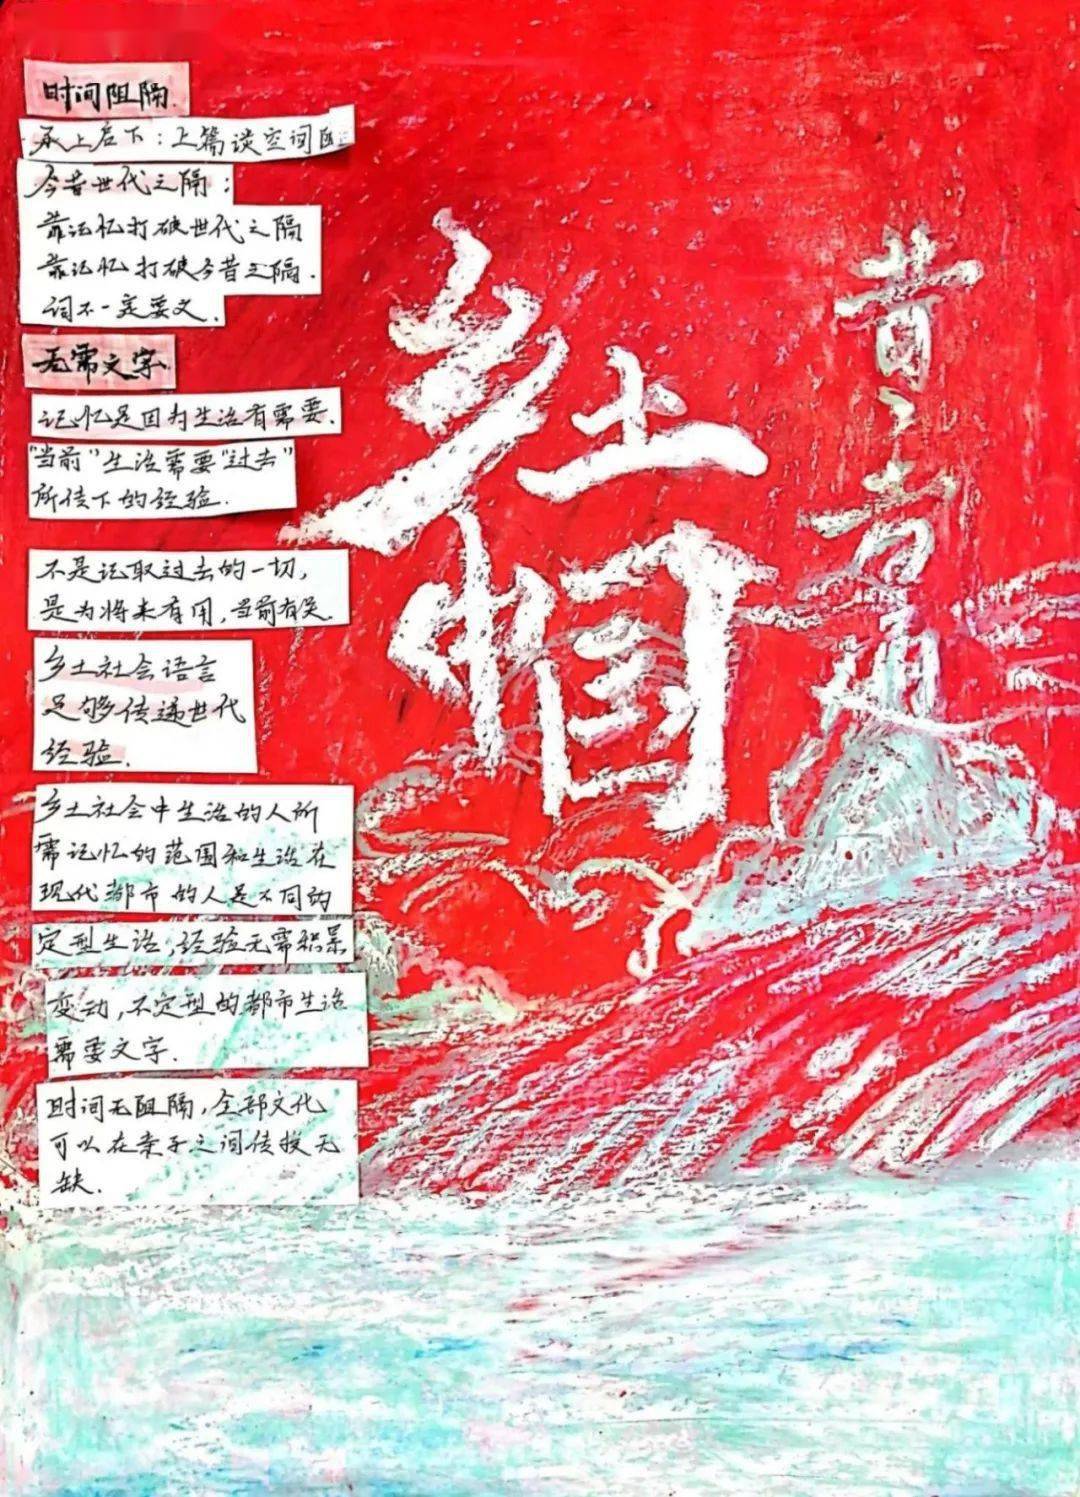 时间阻隔.
承上启下：上篇谈空间
今昔世代之隔：
靠记忆打破世代之隔
靠记忆打破今昔之隔.
词不一定要文.
无需文字
记忆是因为生活有需要.
"当前"生活需要"过去"
所传下的经验.
不是记取过去的一切，
是为将来有用，当前有关.
乡土社会语言
足够传递世代
经验.
乡土社会中生活的人所
需记忆的范围和生活在
现代都市的人是不同的
定型生活，经验无需积累
变动，不定型的都市生活
需要文字.
时间无阻隔，全部文化
可以在亲子之间传授无
缺.
乡土
中国